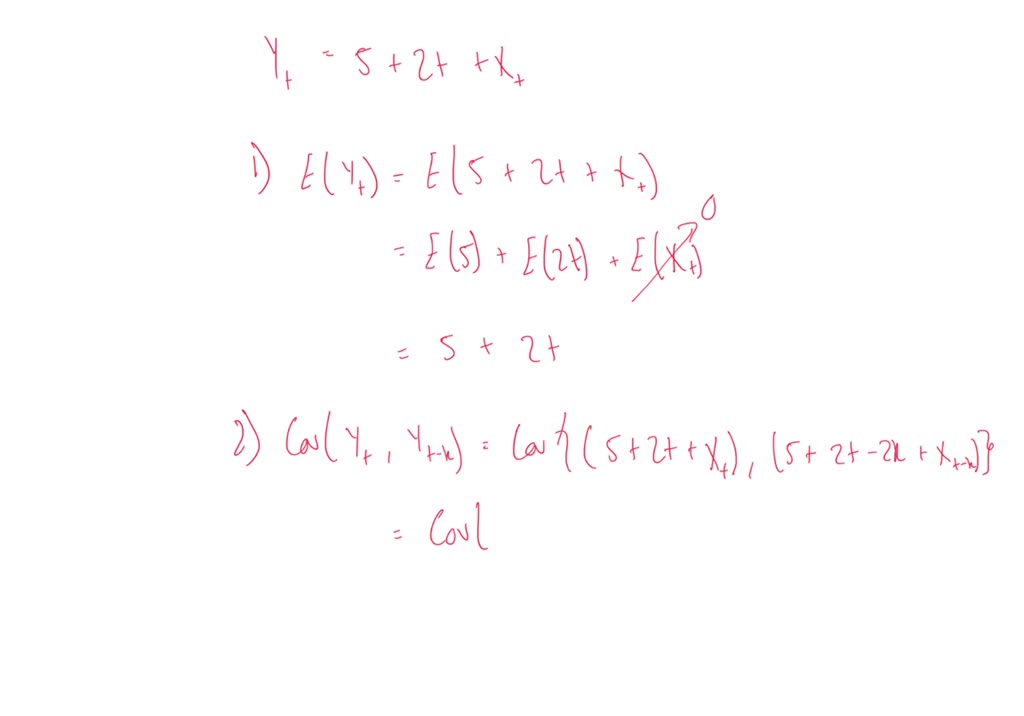 Y_t = 5 + 2t + X_t
1) E(Y_t) = E(5 + 2t + X_t)
= E(5) + E(2t) + E(X_t) 0
= 5 + 2t
2) Cov(Y_t, Y_{t-k}) = Cov{(5+2t+X_t), (5+2t-2k+X_{t-k})}
= Cov(